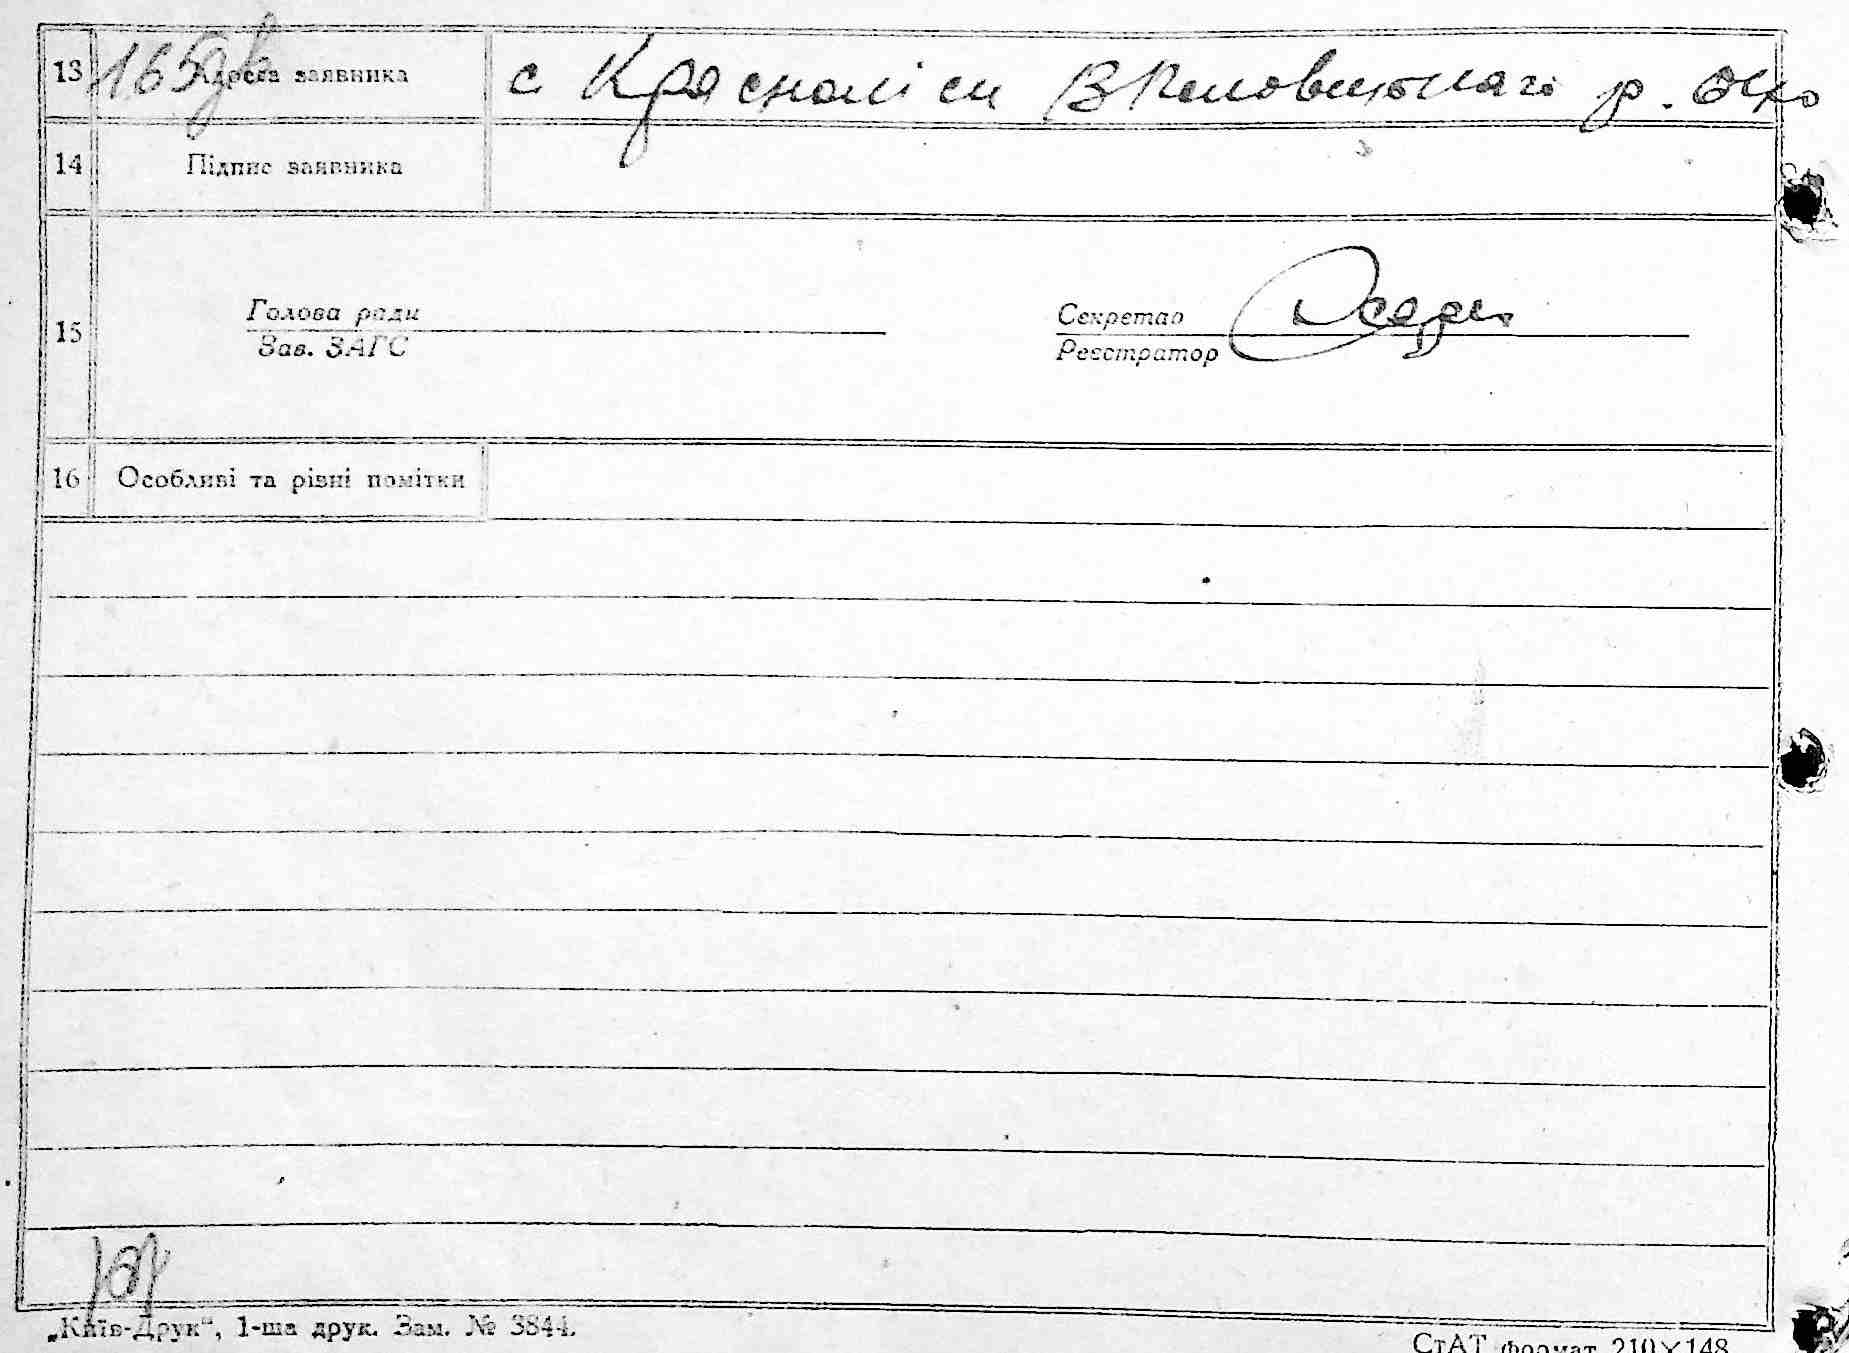 13 165 Адреса заявника с Красналіси
14 Підпис заявника
15
Голова ради Секретар
Зав. ЗАГС Реєстратор
16 Особливі та різні помітки
„Київ-Друк“, 1-ша друк. Зам. № 3844.
СтАТ формат 210×148